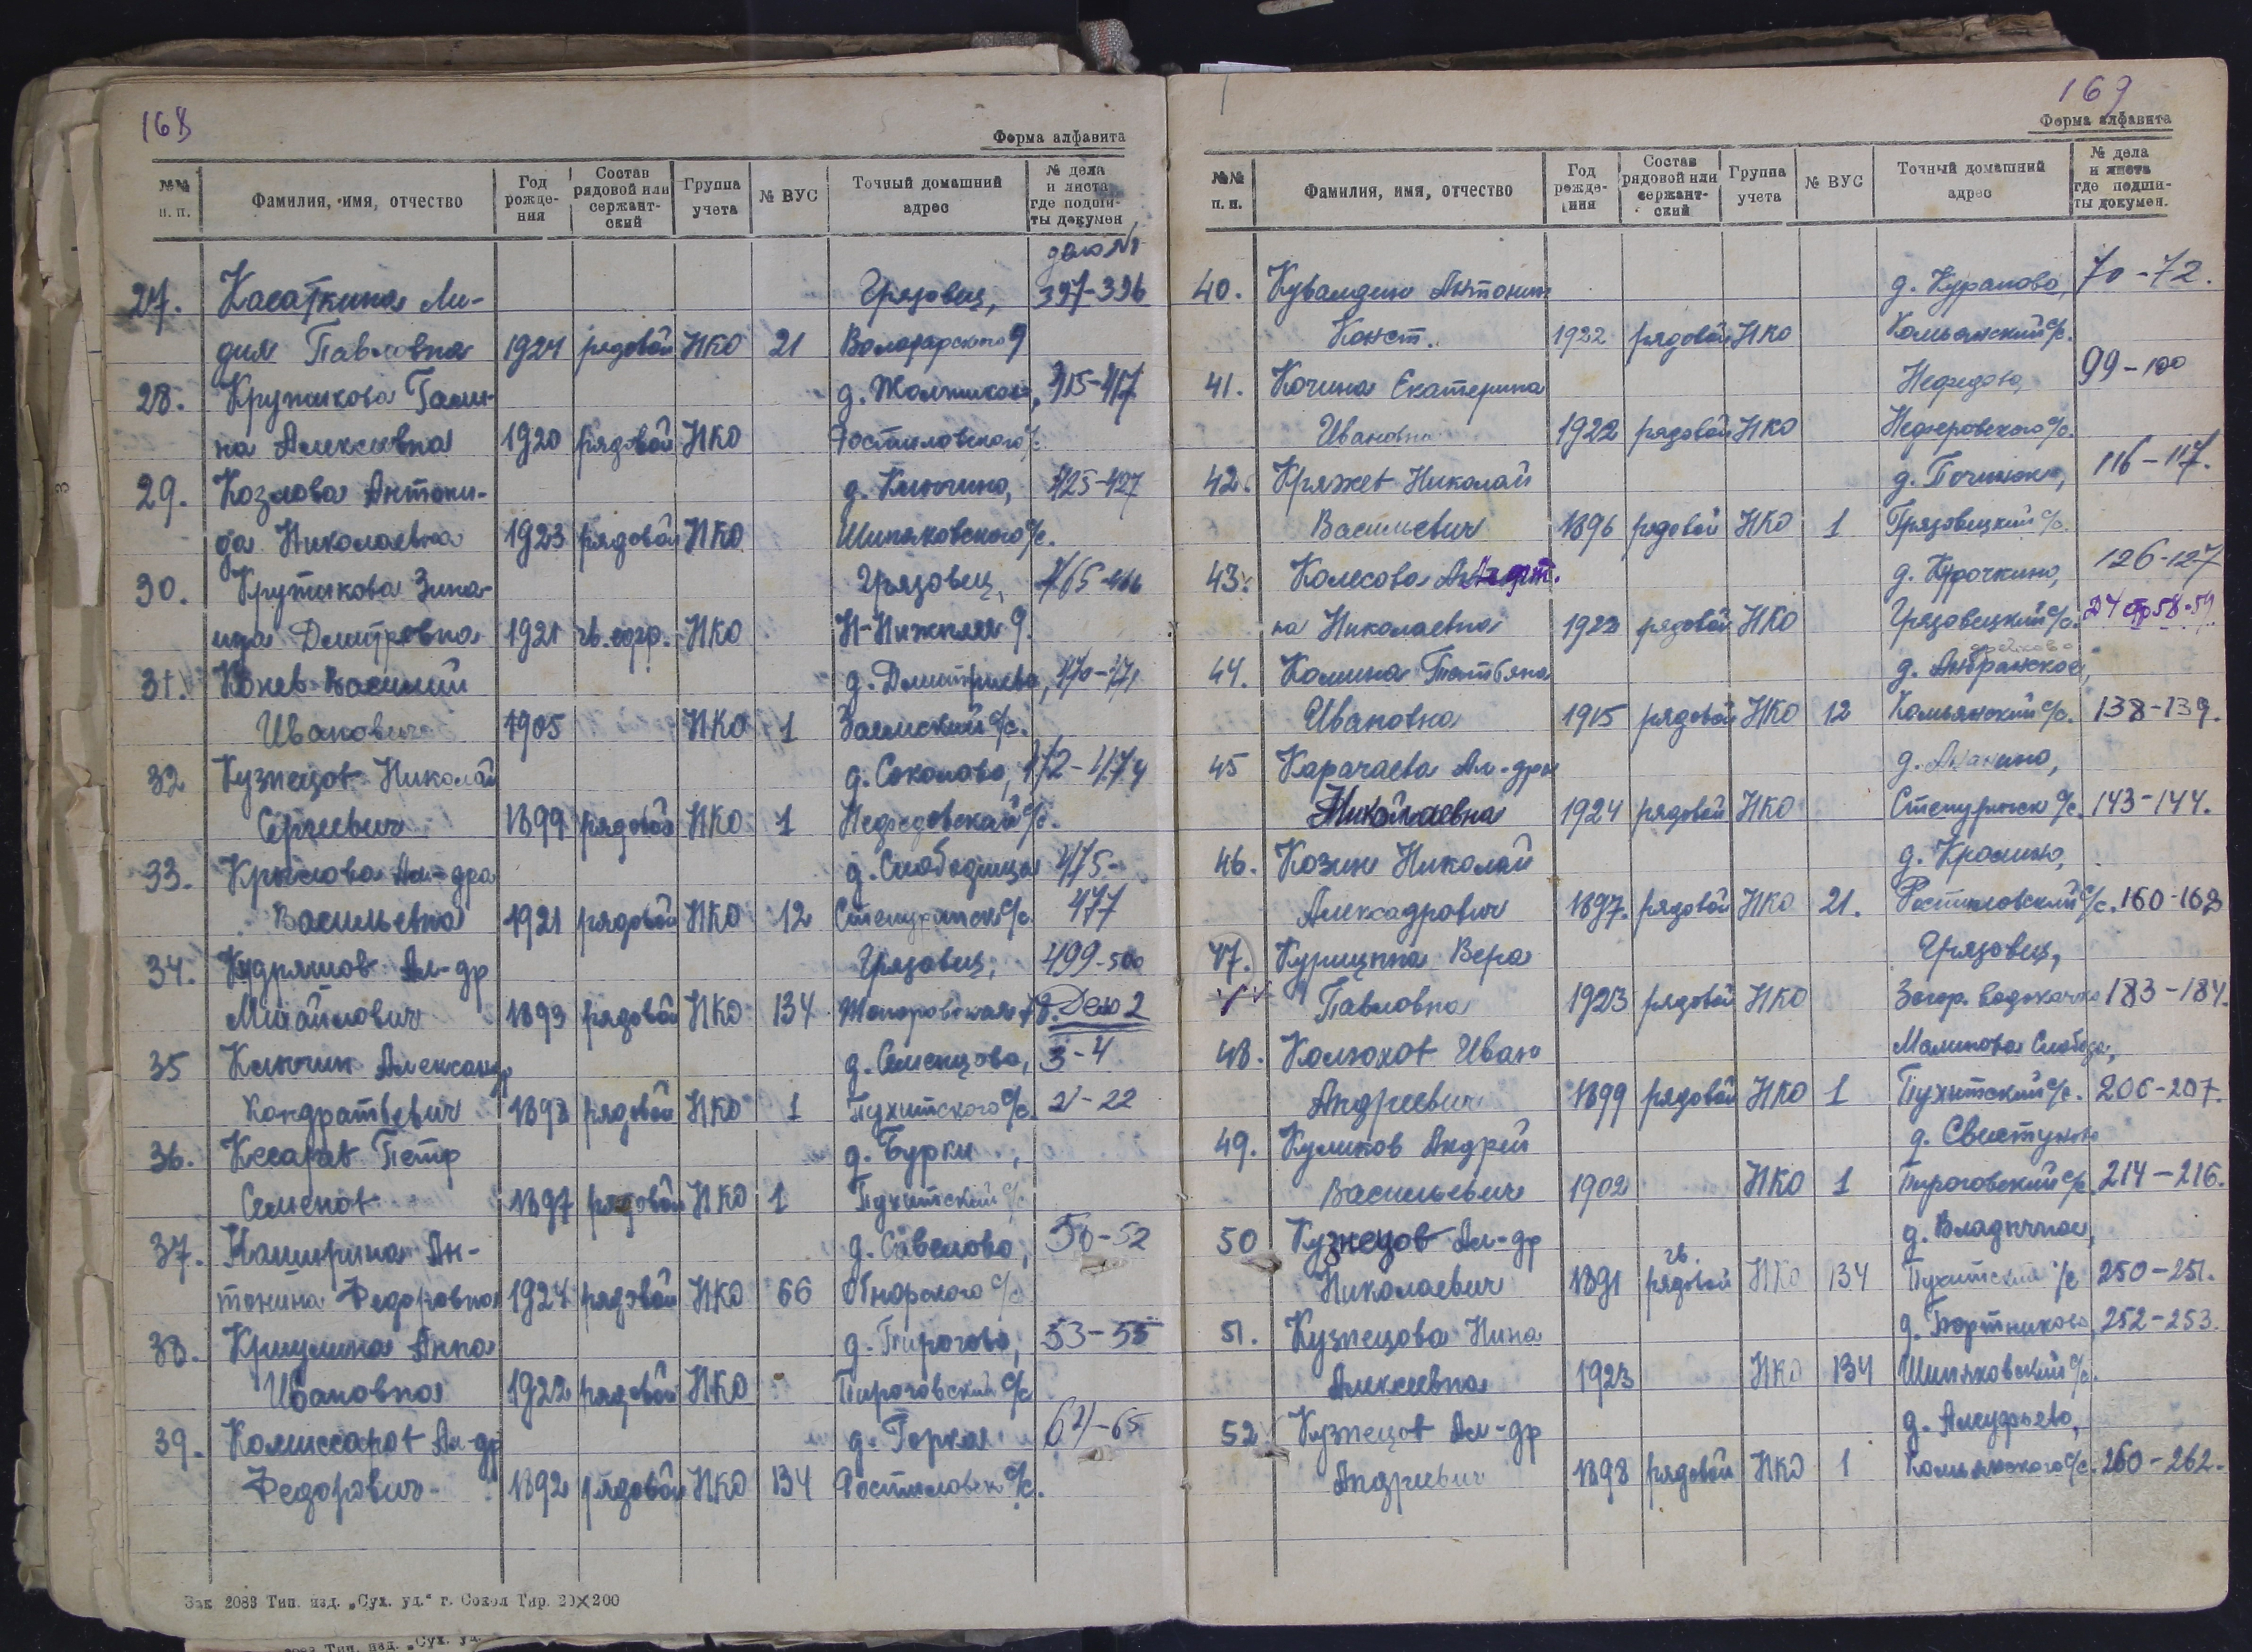 168
Форма алфавита
№№ п. п. Фамилия, имя, отчество Год рождения Состав рядовой или сержантский Группа учета № ВУС Точный домашний адрес № дела и листа где подшиты докумен
дело №1
27. Касаткина Ли- Грязовец, 397-396
дия Павловна 1924 рядовой НКО 21 Володарского 9
28. Крутикова Гали- д. 415-417
на Алексеевна 1920 рядовой НКО Ростиловского с/с.
29. Козлова Антони- д. Ключино, 425-427
да Николаевна 1923 рядовой НКО Шиляковского с/с.
30. Крутикова Зина- Грязовец, 465-466
ида Дмитревна 1921 НКО Н-Нижняя 9.
31. Конев Василий д. Дмитриево, 470-471
Иванович 1905 НКО 1 Заемский с/с.
32 Кузнецов Николай д. Соколово, 472-474
Сергеевич 1899 рядовой НКО 1 Нефедовской с/с.
33. Крылова Ал-дра д. Слободища 475-
Васильевна 1921 рядовой НКО 12 Степуринск с/с 477
34. Кудряшов Ал-др Грязовец, 499-500
Михайлович 1893 рядовой НКО 134 78. Дело 2
35 Ключин Александр д. Семенцово, 3-4
Кондратьевич 1893 рядовой НКО 1 Пухитского с/с. 21-22
36. Кесарев Петр д. Бурки,
Семенов 1897 рядовой НКО 1 Пухитский с/с
37. Каширина Ан- д. Савелово, 50-52
тонина Федоровна 1924 рядовой НКО 66 Обнорского с/с
38. Криулина Анна д. Пирогово, 53-55
Ивановна 1922 рядовой НКО Пироговский с/с
39. Комиссаров Ал-др д. Горка 64-65
Федорович 1892 рядовой НКО 134 Ростиловск с/с.
Зак 2083 Тип. изд. „Сух. ул.“ г. Сокол Тир. 20×200
169
Форма алфавита
№№ п. п. Фамилия, имя, отчество Год рождения Состав рядовой или сержантский Группа учета № ВУС Точный домашний адрес № дела и листа где подшиты докумен.
40. Кувалдин Антонин д. Курапово, 70-72.
Конст. 1922 рядовой НКО Комьянский с/с.
41. Кочина Екатерина Нефедово, 99-100
Ивановна 1922 рядовой НКО Недзеровского с/с.
42. Кряжев Николай д. Починок, 116-117.
Васильевич 1896 рядовой НКО 1 Грязовецкий с/с.
43. Колесова д. Курочкино, 126-127
на Николаевна 1923 рядовой НКО Грязовецкий с/с. Д4 стр 58-59
44. Комина Татьяна д.
Ивановна 1915 рядовой НКО 12 Комьянский с/с. 138-139.
45 Карачаева Ал-дра д. Ананино,
Николаевна 1924 рядовой НКО Степуринск с/с. 143-144.
46. Козин Николай д. Кролино,
Алексадрович 1897. рядовой НКО 21. Ростиловский с/с. 160-162
47. Курицына Вера Грязовец,
Павловна 1923 рядовой НКО Загор. водокачка 183-184.
48. Колюхов Иван Малинова Слобода,
Андреевич 1899 рядовой НКО 1 Пухитский с/с. 206-207.
49. Куликов Андрей д. Свистуново
Васильевич 1902 НКО 1 Пироговский с/с. 214-216.
50 Кузнецов Ал-др гв. д. Владычное,
Николаевич 1891 рядовой НКО 134 Пухитский с/с 250-251.
51. Кузнецова Нина д. Портниково, 252-253.
Алексеевна 1923 НКО 134 Шиляковский с/с.
52. Кузнецов Ал-др д.
Андреевич 1898 рядовой НКО 1 Комьянского с/с. 260-262.